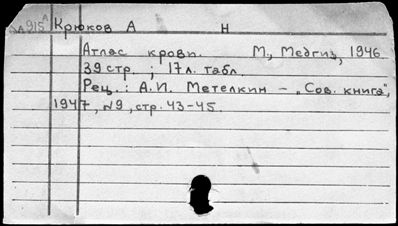 Крюков А Н
Атлас крови. М., Медгиз, 1946
39 стр. ; 17 л. табл.
Рец.: А.И. Метелкин – „Сов. книга",
1947, №9, стр. 43-45.